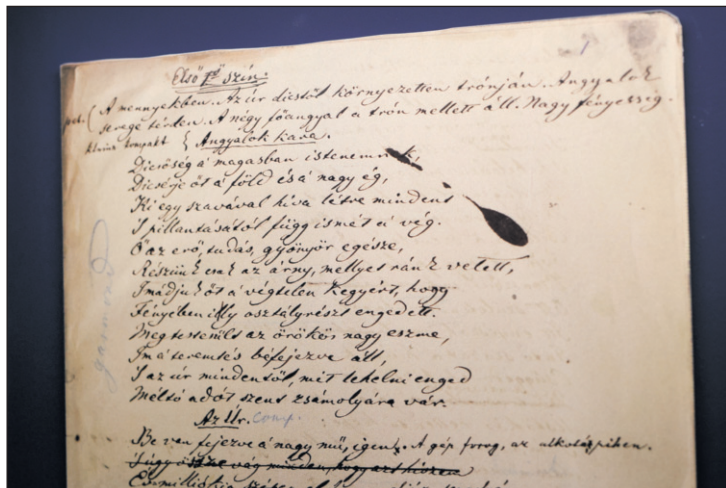 Első szín.
A mennyekben. Az úr dicstől környezetten trónján. Angyalok
serege térden. A négy főangyal a trón mellett áll. Nagy fényesség.
kompakt { Angyalok kara.
Dicsőség a magasban istenemnek,
Dicsérje őt a föld és a nagy ég,
Ki egy szavával híva létre mindent
S pillantásától függ ismét a vég.
Ő az erő, tudás, gyönyör egésze,
Részünk csak az árny, mellyet ránk vetett,
Imádjuk őt a végtelen kegyért, hogy
Fényében illy osztályrészt engedett.
Megtestesült az örökös nagy eszme,
Im a teremtés béfejezve áll,
S az úr mindentől, mit lehelni enged
Méltó adót szent zsámolyára vár.
Az Úr. comp.
Be van fejezve a nagy mű, igen. A gép forog, az alkotó pihen.
garmond